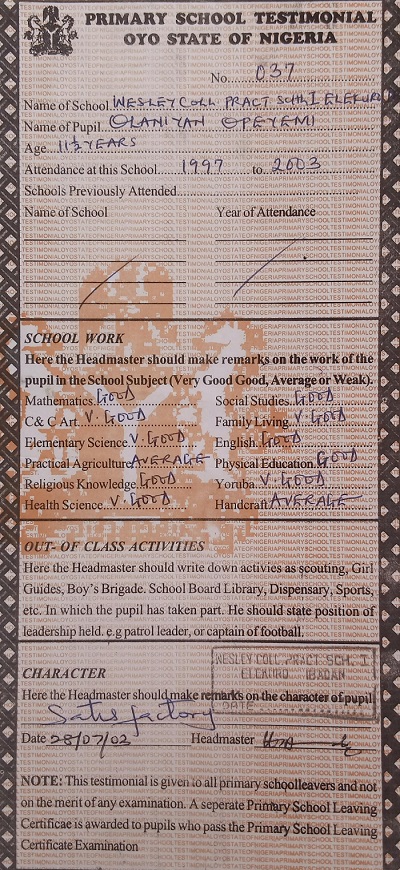 PRIMARY SCHOOL TESTIMONIAL
OYO STATE OF NIGERIA
No. 037
Name of School. WESLEY COLL PRACT SCH. I ELEKURO
Name of Pupil. OLANIYAN OPEYEMI
Age 11½ YEARS
Attendance at this School 1997 to 2003
Schools Previously Attended
Name of School Year of Attendance
SCHOOL WORK
Here the Headmaster should make remarks on the work of the
pupil in the School Subject (Very Good Good, Average or Weak).
Mathematics. GOOD Social Studies. GOOD
C & C Art. V. GOOD Family Living. V. GOOD
Elementary Science. V. GOOD English. GOOD
Practical Agriculture AVERAGE Physical Education. GOOD
Religious Knowledge. GOOD Yoruba. V. GOOD
Health Science. V. GOOD Handcraft AVERAGE
OUT- OF CLASS ACTIVITIES
Here the Headmaster should write down activies as scouting, Girl
Guides, Boy's Brigade. School Board Library, Dispensary, Sports,
etc. In which the pupil has taken part. He should state position of
leadership held. e.g patrol leader, or captain of football.
WESLEY COLL. PRACT SCH. I
ELEKURO IBADAN
DATE
CHARACTER
Here the Headmaster should make remarks on the character of pupil
Satisfactory
Date 28/07/03 Headmaster
NOTE: This testimonial is given to all primary schoolleavers and not
on the merit of any examination. A seperate Primary School Leaving
Certificae is awarded to pupils who pass the Primary School Leaving
Certificate Examination